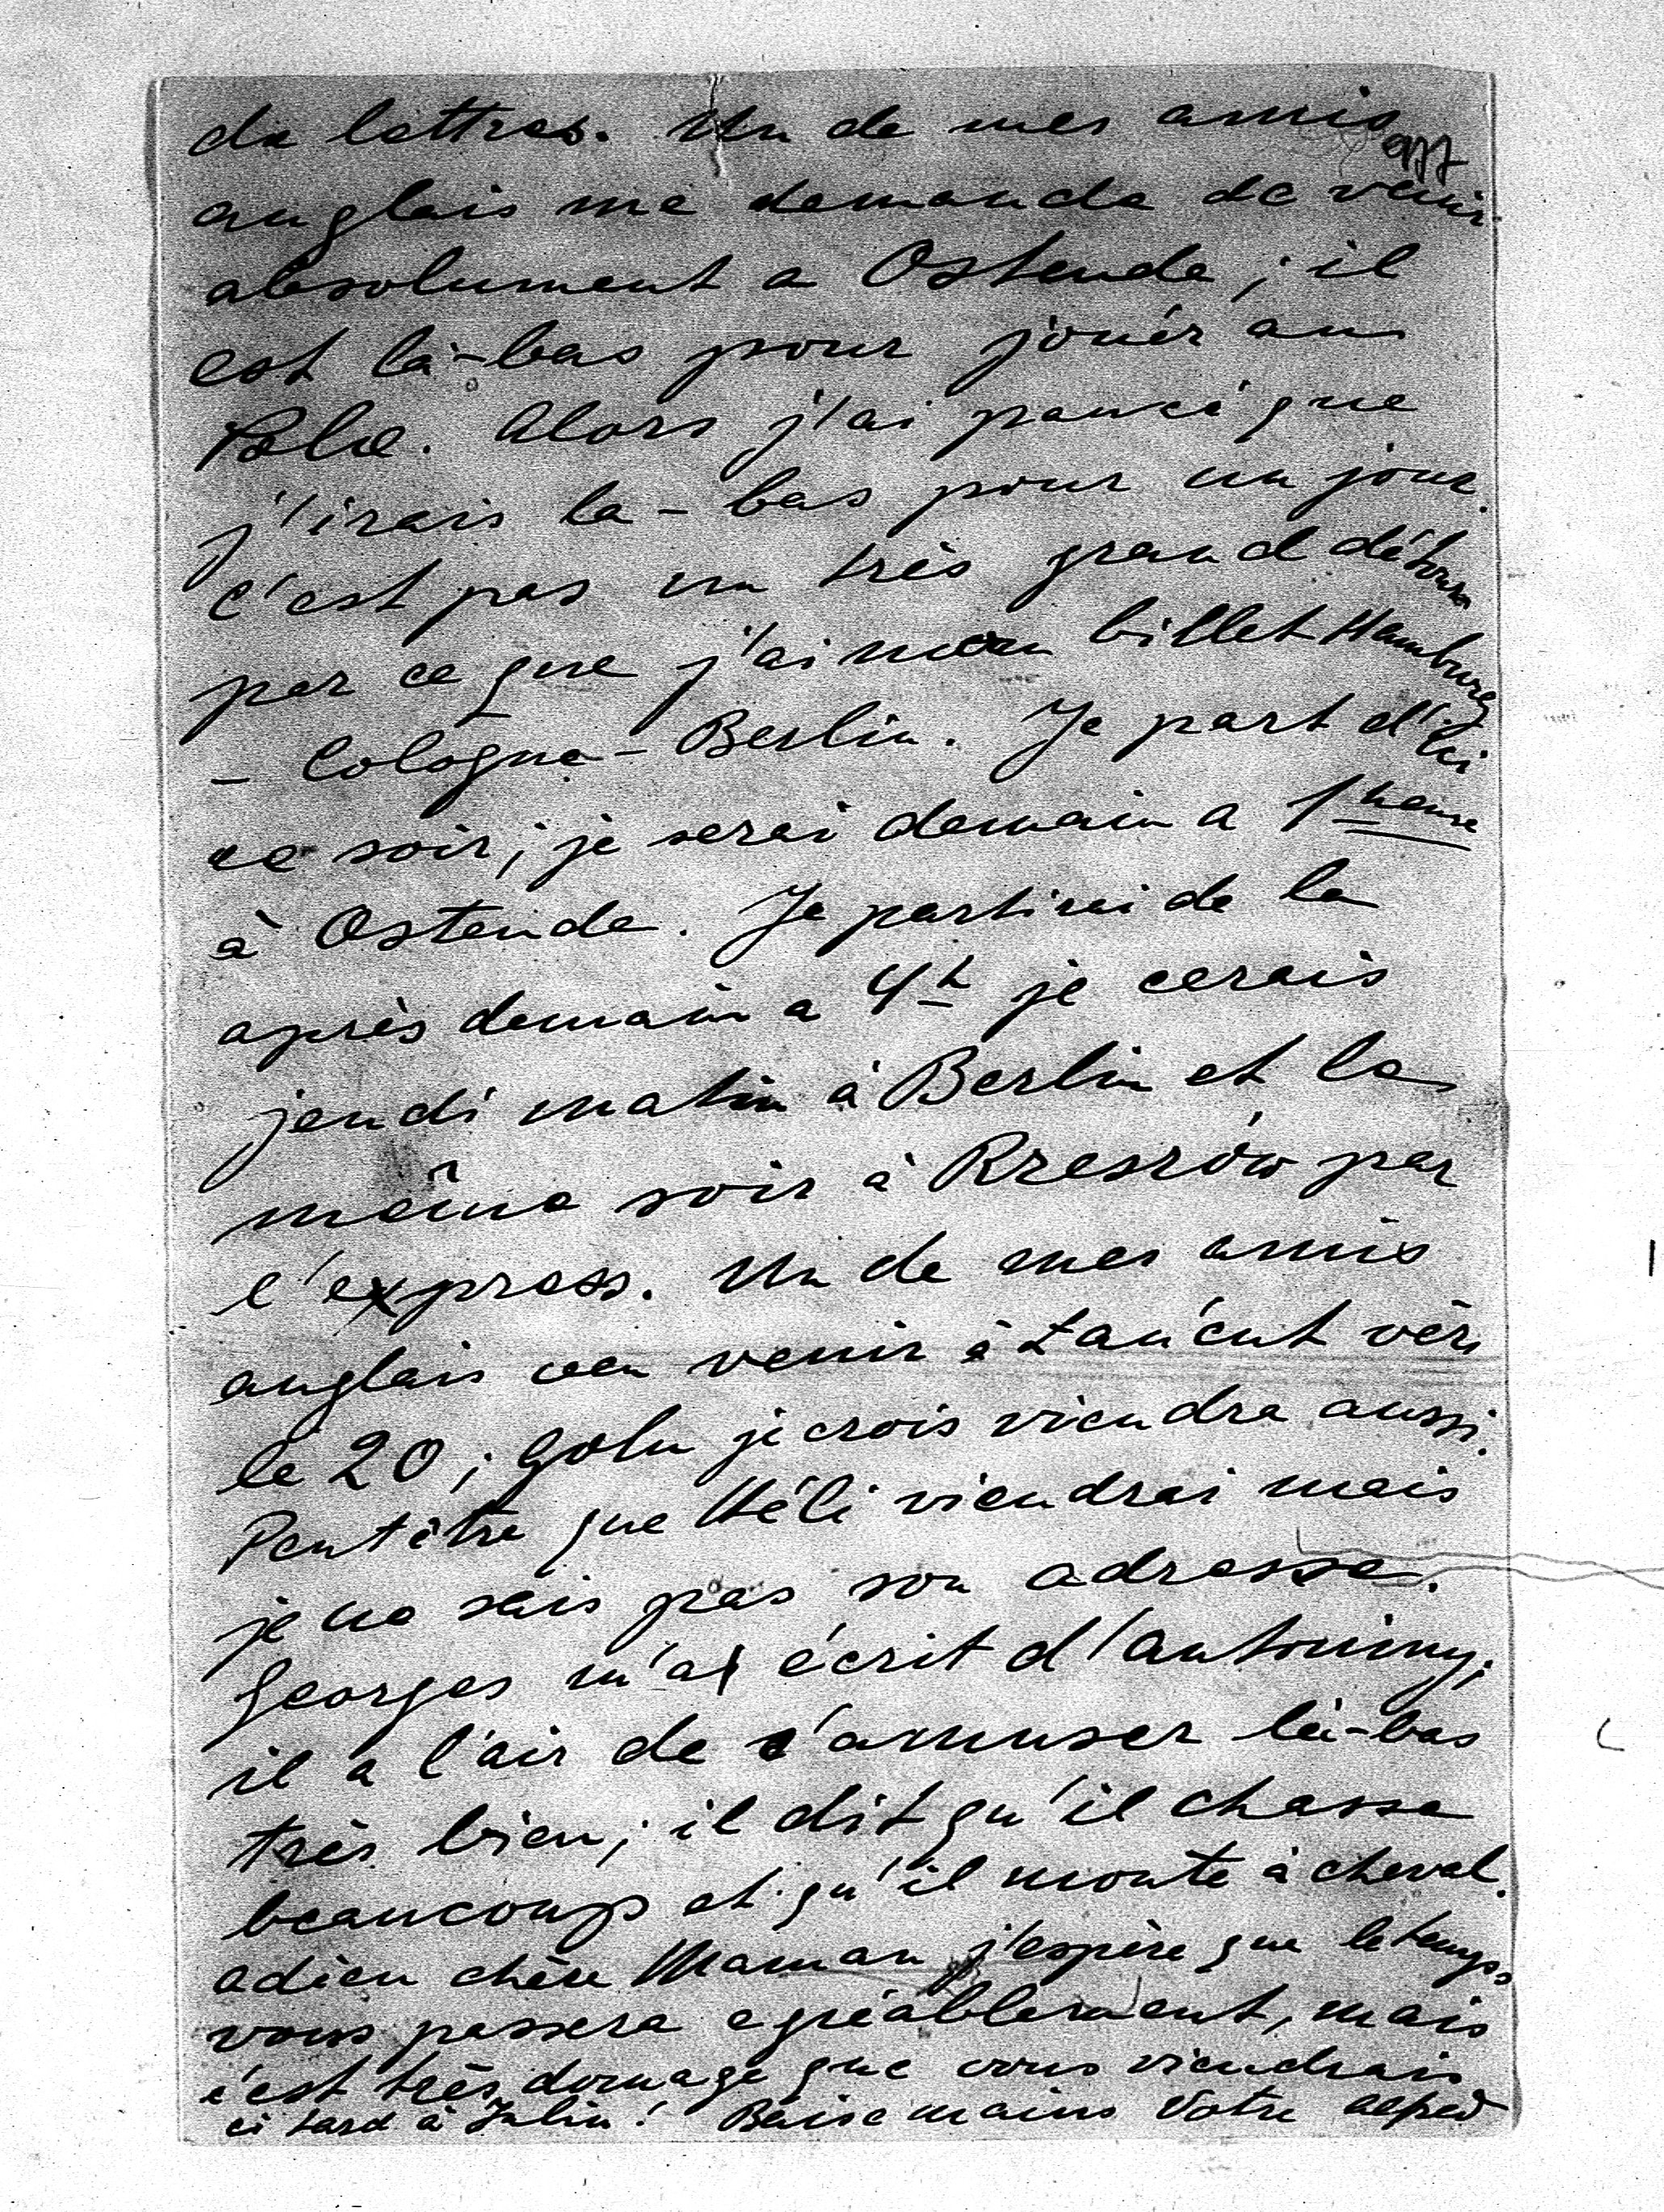 de lettres. Un de mes amis
977
anglais me demande de venir
absolument a Ostende ; il
est là-bas pour jouér au
Polo. Alors j'ai pencé que
j'irais la-bas pour un jour.
c'est pas un très grand détour
par ce que j'ai mon billet Hambourg
- Cologne - Berlin. Je part d'ici
ce soir ; je serai demain a 1 heure
à Ostende. Je partirai de la
après demain a 4h je cerais
jeudi matin à Berlin et le
même soir à Rzeszów par
l'express. Un de mes amis
anglais veu venir à Łańcut vèrs
le 20 ; je crois viendra aussi.
Peut être que Héli viendrai mais
je ne sais pas son adresse.
Georges m'a écrit d'Antoniny,
il a l'air de s'amuser là-bas
très bien ; il dit qu'il chasse
beaucoup et qu'il monte à cheval.
adieu chère Maman j'espère que le temps
vous passera agréablement, mais
c'est très domage que vous viendrais
ci tard à Julin ! Baise mains Votre Alfred